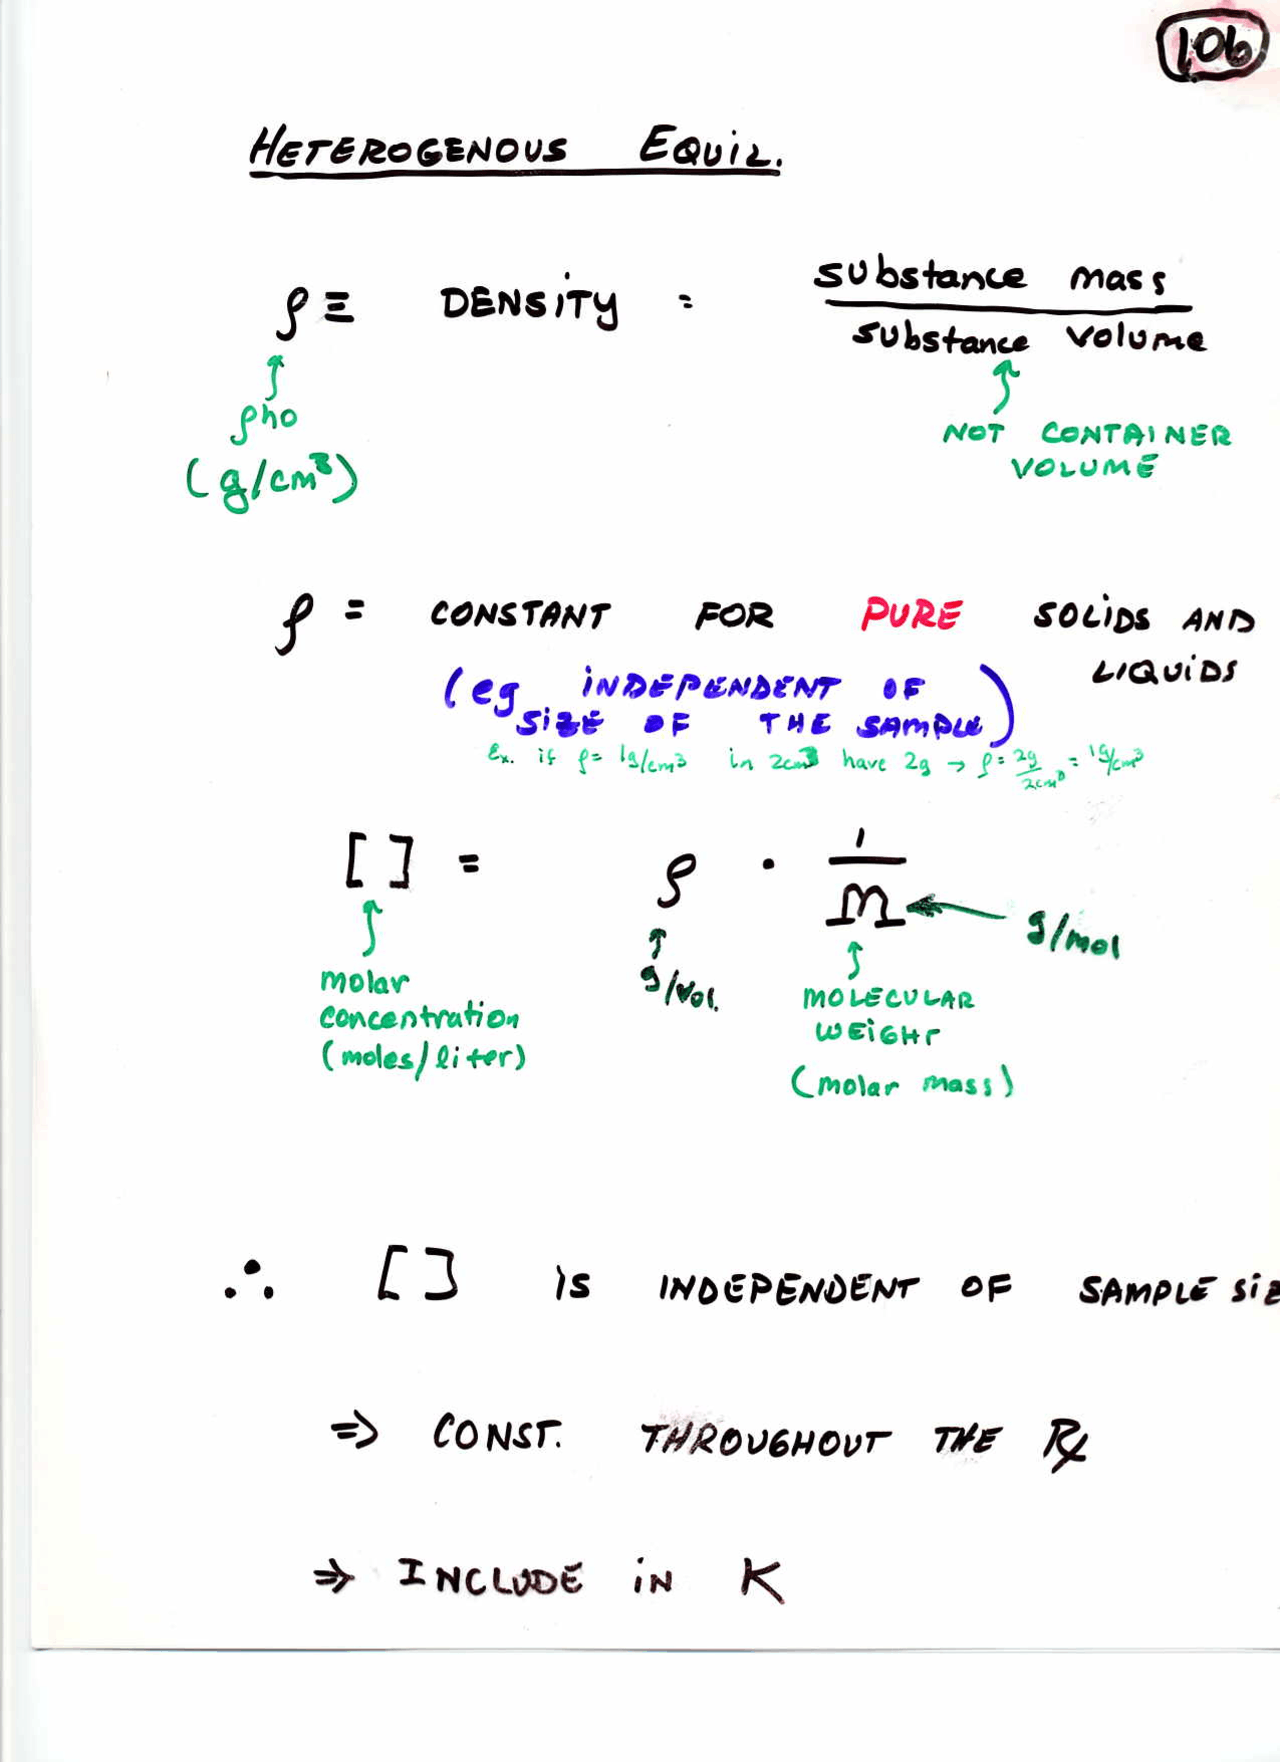 10b
HETEROGENOUS EQUIL.
ρ ≡ DENSITY = substance mass
substance volume
ρho
(g/cm³)
NOT CONTAINER
VOLUME
ρ = CONSTANT FOR PURE SOLIDS AND
LIQUIDS
(eg INDEPENDENT OF
SIZE OF THE SAMPLE)
Ex. if ρ= 1g/cm³ in 2cm³ have 2g → ρ = 2g/2cm³ = 1g/cm³
[ ] = ρ · 1/m
g/mol
molar
concentration
(moles/liter)
g/vol.
MOLECULAR
WEIGHT
(molar mass)
∴ [ ] IS INDEPENDENT OF SAMPLE SIZ
⇒ CONST. THROUGHOUT THE Rx
⇒ INCLUDE IN K